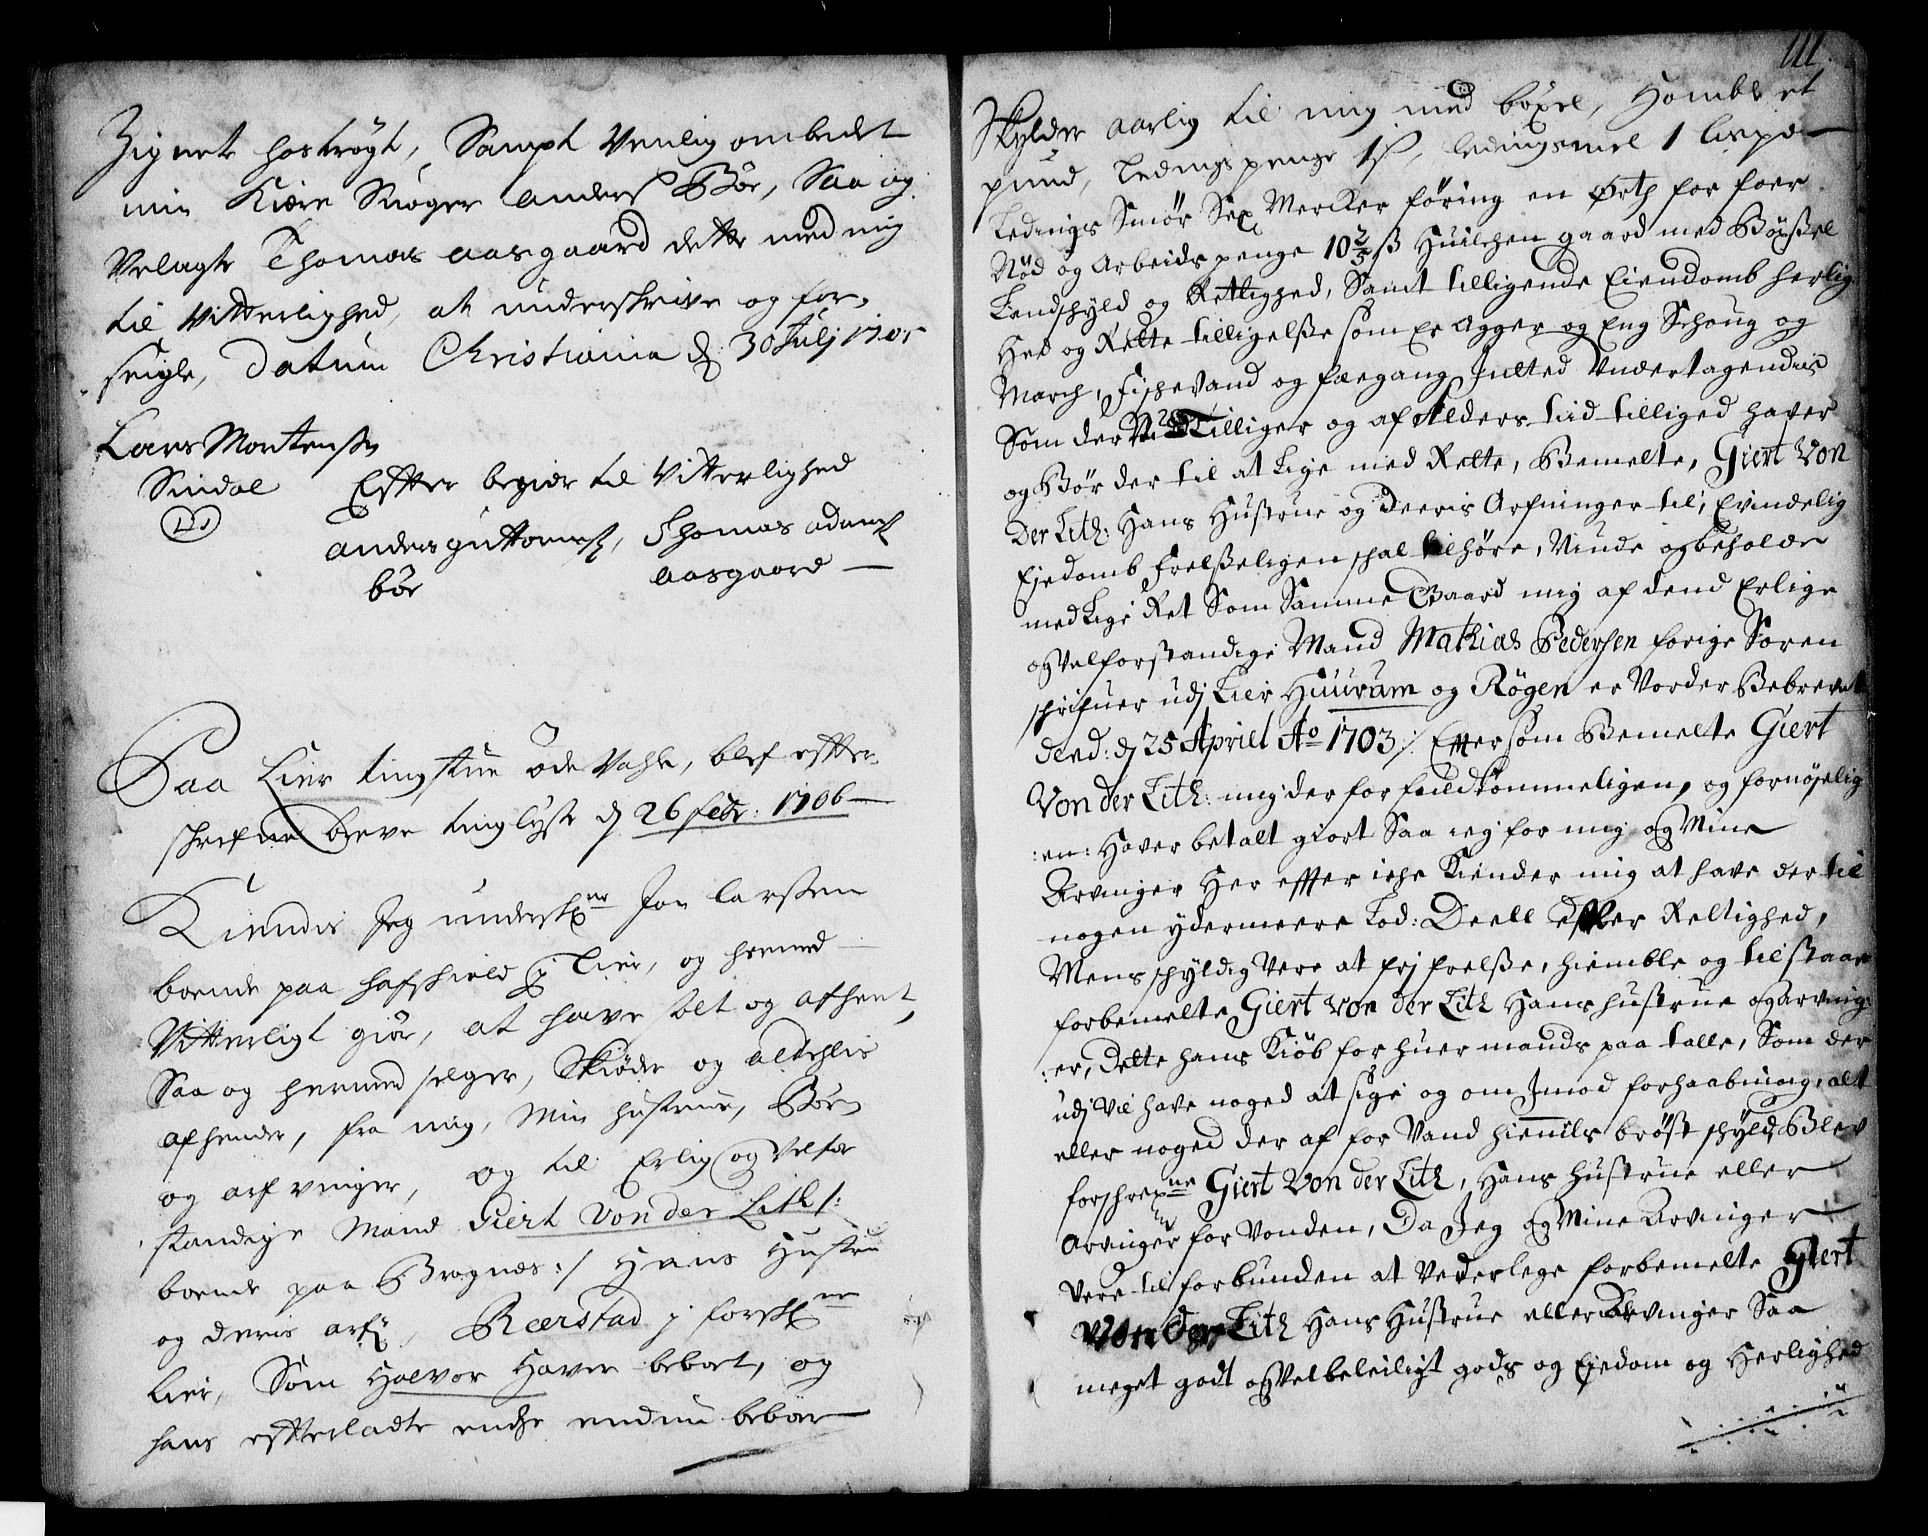 Zignete hoströgt, Sampt Venlig ombedet
min Kiere Suoger Anders Bör, Saa og
Velagte Thomas Aasgaard dette med mig
til Vitterlighed, at underschrive og for-
seigle, Datum Christiania d 30 Julj 1705
Lars Mortensen
Sindal
Efter begier til Vitterlighed
Anders guttormß, Thomas adamß
bör aasgaard
Paa Lier tingstue öde Vahle, blef effter-
schrefne breve tinglyste d 26 febr: 1706
Kiendis Jeg undersch:ne Jon Larssen
boende paa hafschield j Lier, og hermed
Vitterligt giör, at have solt og afhent,
Saa og hermed selger, Skiöder og aldehlis
afhender, fra mig, Min hustrue, Börn
og arfvinger, og til Erlig og Velfor
standige Mand Giert Von der Lith /:
boende paa Bragnæs :/ Hans Hustrue
og deris arf:, Reerstad j forsch:ne
Lier, Som Halvor Haver beboet, og
hans efterladte encke endnu beboer
111.
Skylder aarlig til mig med böxel, Homble et
pund, Ledings penge 1ß, Ledingsmel 1 lispd
Ledings Smör Sex Mercker föring en Ørth for foer
Nöd og Arbeids penge 10 2/3 ß Huilchen gaard med Böxßel
Landschyld og Rettighed, Samt tilligende Eiendomb herlig
Hed og Rette tilligelße som Er Agger og Eng Schoug og
March, Fischevand og fægang Jnttet Undertagendis
Som der Nu Tilliger og af Alders tiid tilliged haver
og Bör der til at Lige med Rette, Bemelte, Giert Von
Der Lith: Hans Hustrue og Deeris Arfvinger til, Evindelig
Ejedomb frelßeligen schal tilhöre, Niude og beholde
med Lige Ret Som Samme Gaard mig af dend Erlige
og Velforstandige Mand Mathias Pedersen forige Soren
schrifuer udj Lier Huurum og Rögen er Vorder Bebrevet
dend: d 25 Apriel Ao 1703 ./. Effter som Bemelte Giert
Von der Lith: mig der for fuldkommeligen, og fornöjelig
:en: Haver betalt giort Saa ieg for mig og Mine
Arvinger Her effter iche Kiender mig at have der til
nogen ydermeere Lod: Deell Eller Rettighed,
Mens schyldig Vere at frj frelße, hiemble og tilstaae
forbemelte Giert Von der Lith Hans hustrue og arving
:er, Dette hans Kiöb for huer mands paa talle, Som der
udj Vil have noged at sige og om Jmod forhaabning, alt
eller noged der af for Vand hiemils bröst schyld Blev
forschrefne Giert Von der Lith, Hans Hustrue eller
Arvinger for Vonden, Da Jeg og Mine Arvinger
Vere til forbunden at Vederlege forbemelte Giert
Von der Lith Hans Hustrue eller Arvinger Saa
meget godt og Velbeleiligt gods og Ejedom og Herlighed